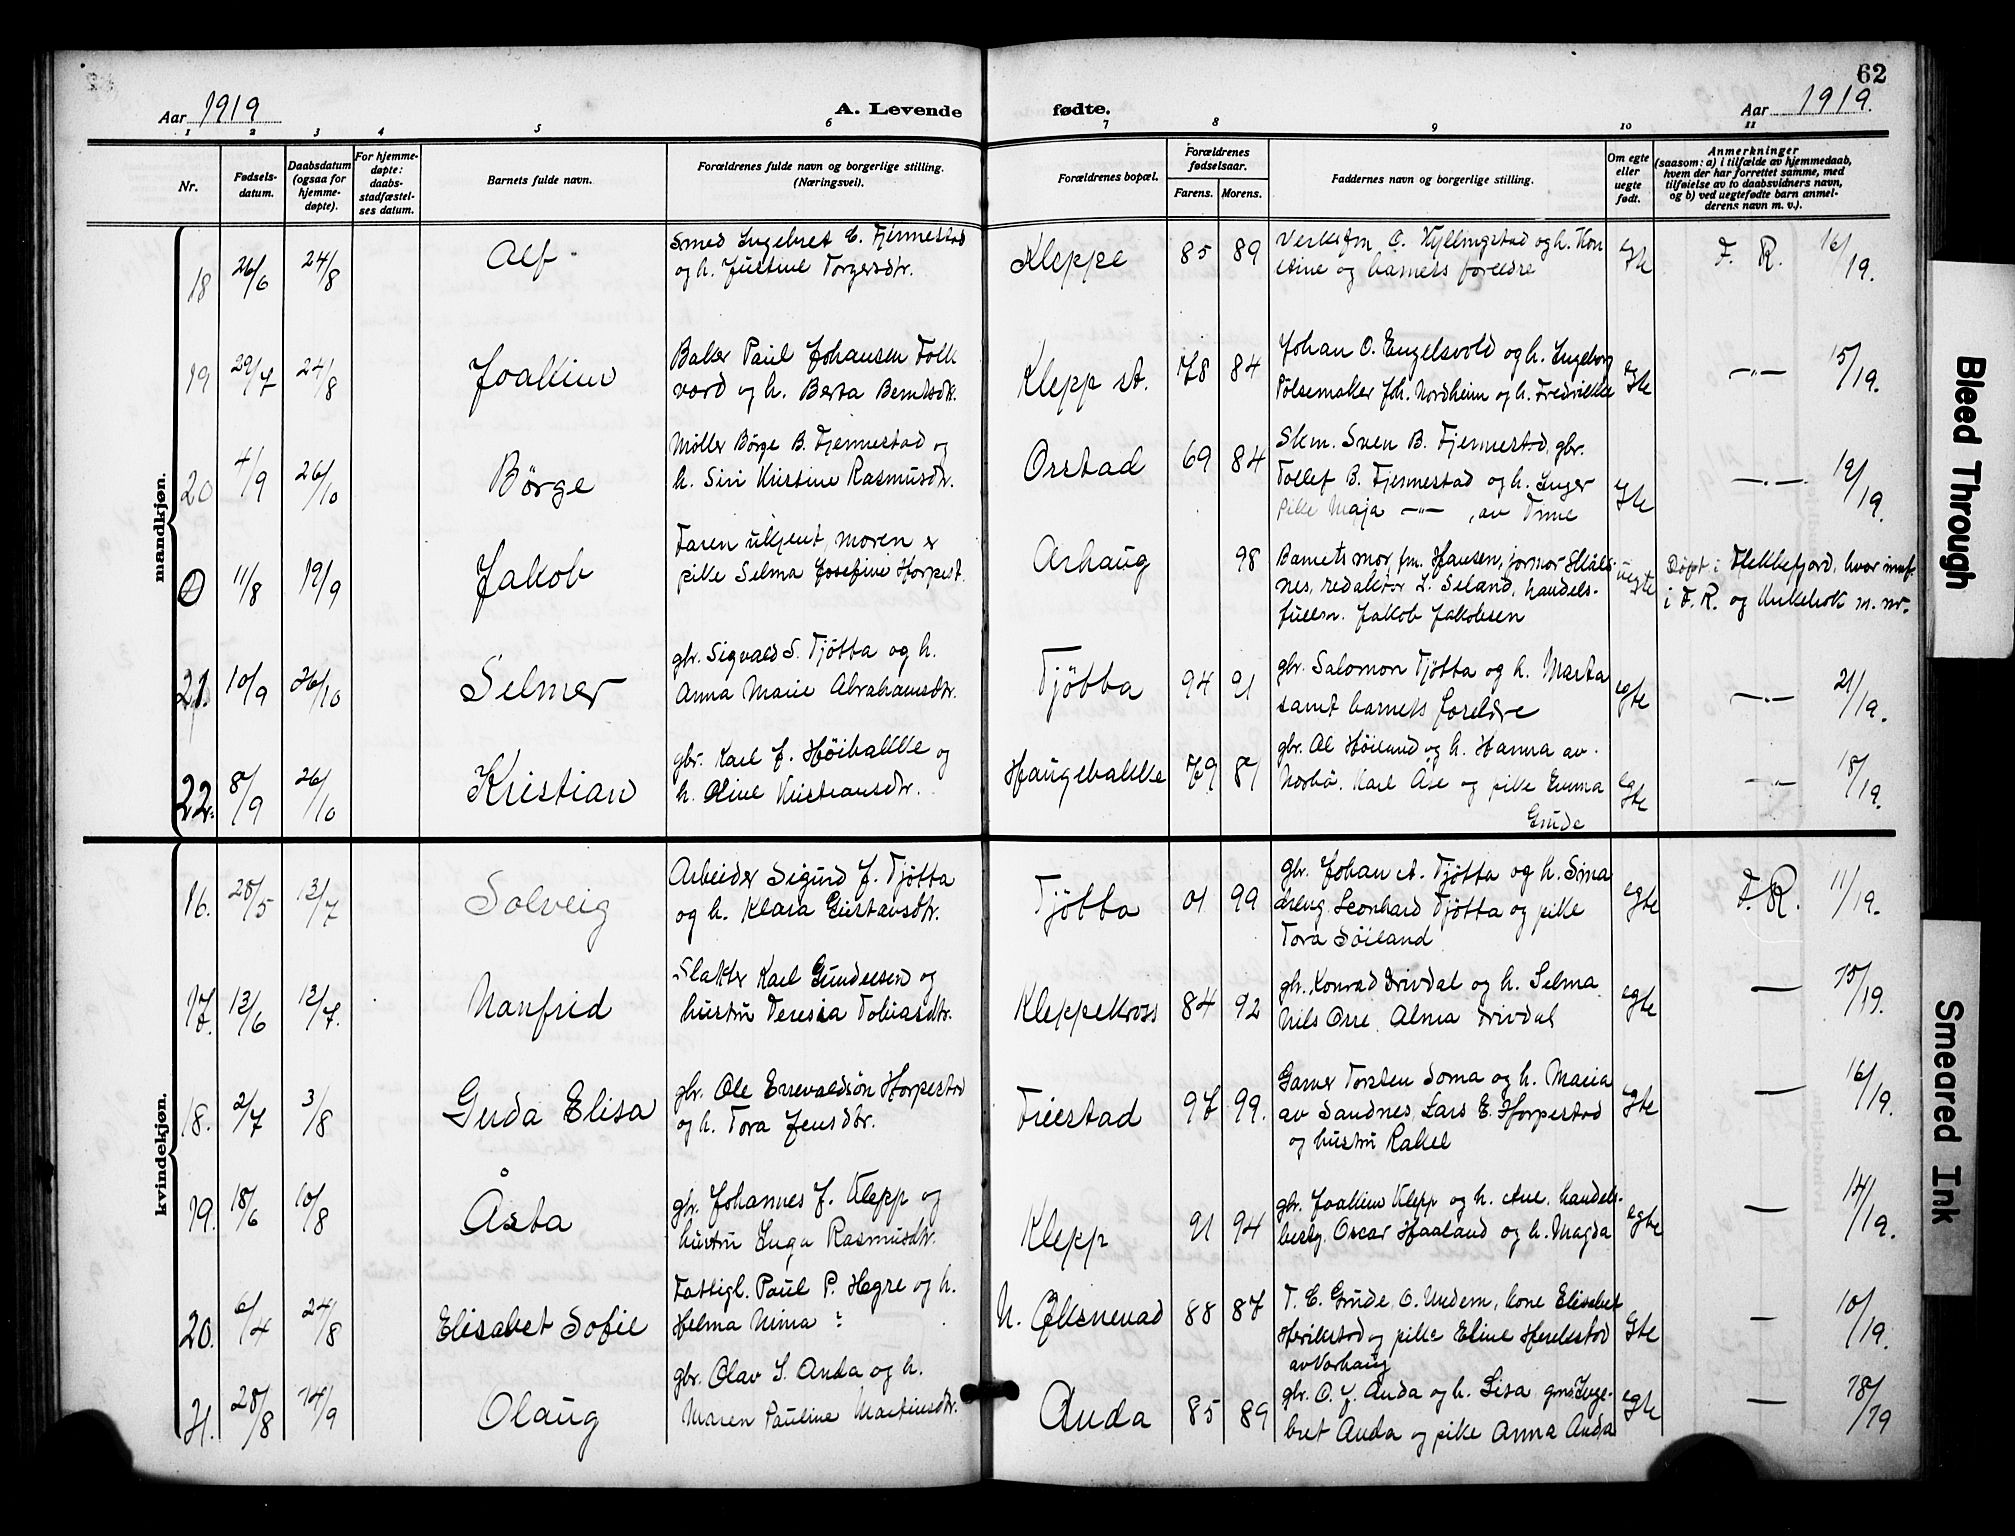 62
Aar 1919
A. Levende fødte.
Aar 1919.
1 2 3 4 5 6 7 8 9 10 11
Nr.
Fødsels-
datum.
Daabsdatum
(ogsaa for
hjemme-
døpte).
For hjemme-
døpte:
daabs-
stadfæstel-
ses datum.
Barnets fulde navn.
Forældrenes fulde navn og borgerlige stilling.
(Næringsvei).
Forældrenes bopæl.
Forældrenes
fødselsaar.
Farens. Morens.
Faddernes navn og borgerlige stilling.
Om egte
eller
uegte
født.
Anmerkninger
(saasom: a) i tilfælde av hjemmedaab,
hvem der har forrettet samme, med
tilføielse av to daabsvidners navn,
og b) ved uegtefødte barn anmel-
derens navn m. v.).
mandkjøn.
18 26/6 24/8 Alf
Smed Ingebret E. Fjermestad
og h. Justine Torgersdtr.
Kleppe 85 89
Verksfm O. Kyllingstad og h. Kon
stine og barnets foreldre
Gte F. R. 16/19.
19 29/7 24/8 Joakim
Baker Paul Johansen Folk
vord og h. Berta Berntsdtr.
Klepp st. 78 84
Johan O. Engelsvold og h. Ingeborg
Pølsemaker Joh. Nordheim og h. Fredrikke
Gte —"— 15/19.
20 4/9 26/10 Børge
Møller Børge B. Fjermestad og
h. Siri Kristine Rasmusdtr.
Orstad 69 84
Skm. Sven B. Fjermestad, gbr.
Tollef B. Fjermestad og h. Inger
pike Maja —"— , av Time
Gte —"— 19/19.
0 11/8 19/9 Jakob
Faren ukjent, moren er
pike Selma Josefine Horpest.
Arhaug 98
Barnets mor, fm. Hansen, jormor Skåle
nes, redaktør L. Seland, handels-
fullm. Jakob Jakobsen
uegte
Døpt i Flekkefjord, hvor innf.
i F. R. og Kirkebok m. nr.
21. 10/9 26/10 Selmer
gbr. Sigvald S. Tjøtta og h.
Anna Marie Abrahamsdtr.
Tjøtta 94 91
gbr. Salomon Tjøtta og h. Marta
samt barnets foreldre
egte —"— 21/19.
22. 8/9 26/10 Kristian
gbr. Karl J. Høibakke og
h. Oline Kristiansdtr.
Haugebakke 79 87
gbr. Al Høiland og h. Hanna av
Norbø. Karl Åse og pike Emma
Grude
egte —"— 18/19.
kvindekjøn.
16. 28/5 13/7 Solveig
Arbeider Sigurd J. Tjøtta
og h. Klara Gustavsdtr.
Tjøtta 01 99
gbr. Johan A. Tjøtta og h. Sina
dreng Leonhard Tjøtta og pike
Tora Søiland
egte F. R. 11/19.
17. 13/6 13/7. Nanfrid
Slakter Karl Gundersen og
hustru Teresia Tobiasdtr.
Kleppekross 84 92
gbr. Konrad Drivdal og h. Selma
Nils Orre, Alma Drivdal
egte — 15/19.
18. 2/7 3/8 Guda Elisa
gbr. Ole Enevaldsøn Horpestad
og h. Tora Jensdtr.
Friestad 97 99.
Garver Torsten Soma og h. Maria
av Sandnes, Lars E. Horpestad
og hustru Rakel
Gte — 16/19.
19. 18/6 10/8 Åsta
gbr. Johannes J. Klepp og
hustru Inga Rasmusdtr.
Klepp 91 94
gbr. Joakim Klepp og h. Ane, handels-
besty. Oscar Haaland og h. Magda
egte — 14/19.
20. 6/4 24/8 Elisabet Sofie
Fattigl. Paul P. Hegre og h.
Helma Nima ?
N. Øksnevad 88 87
T. E. Grude, O. Undem, kone Elisabet
Herikstad og pike Eline Herikstad
av Varhaug
Gte — 10/19.
21. 28/8 14/9 Olaug
gbr. Olav S. Anda og h.
Maren Pauline Martinsdtr.
Anda 85 89
gbr. O. J. Anda og h. Lisa Inge-
bret Anda og pike Anna Anda
Gte — 18/19
Bleed Through
Smeared Ink